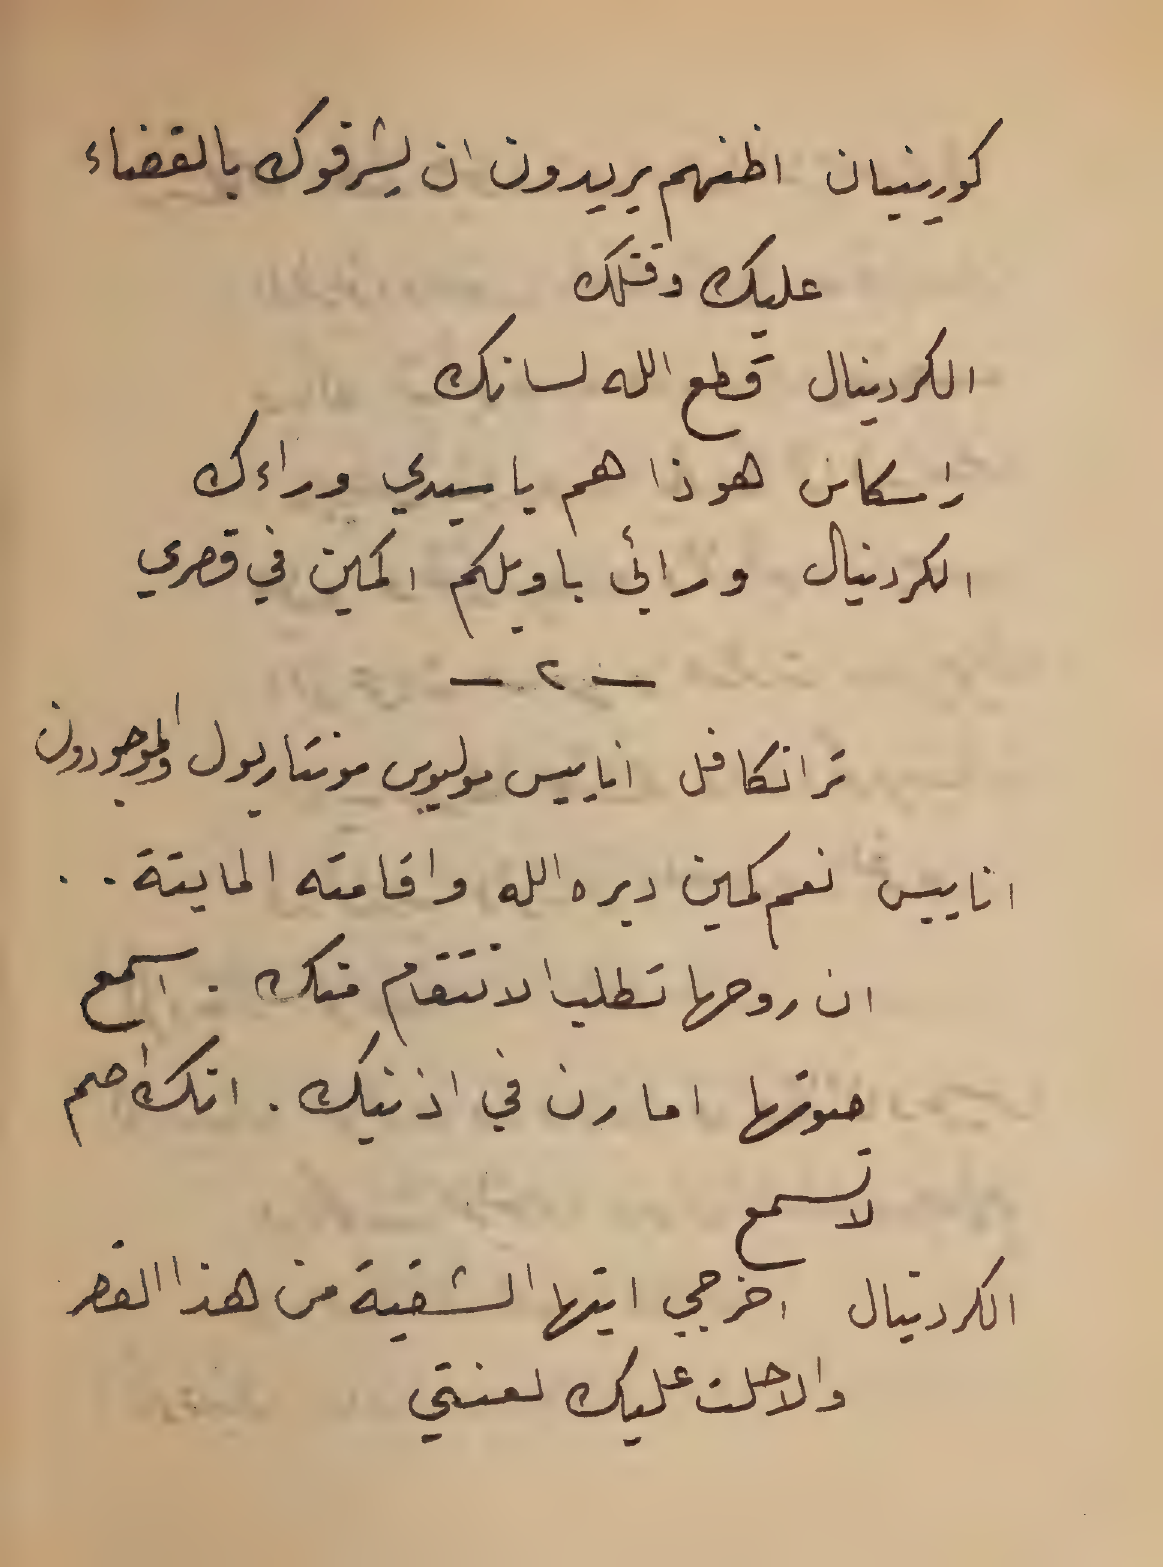 كورينيان اظنهم يريدون ان يشرفوك بالقضاء
عليك وقتلك
الكردينال قطع الله لسانك
راسكاس هوذا هم يا سيدي وراءك
الكردينال ورائي ياويلكم اكمين في قصري
— ٢ —
ترانكافل اناييس موليوس مونتاريول والموجودون
اناييس نعم كمين ديره الله واقامته المايتة . .
ان روحها تطلب الانتقام منك . اسمع
صوتها اما رن في اذنيك . انك اصم
لا تسمع
الكردينال اخرجي ايتها الشقية من هذا القصر
والا حلت عليك لعنتي